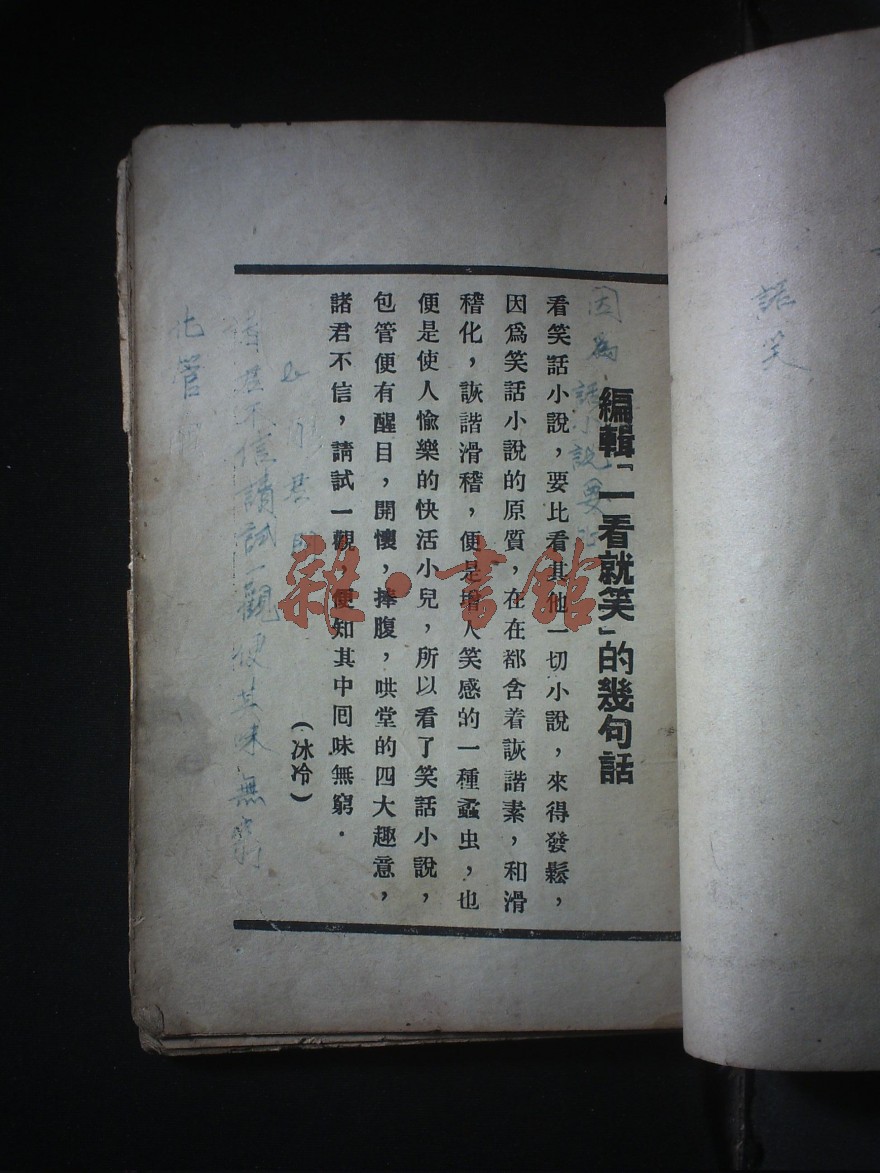 編輯「一看就笑」的幾句話
看笑話小說，要比看其他一切小說，來得發鬆，
因爲笑話小說的原質，在在都含着詼諧素，和滑
稽化，詼諧滑稽，便是增人笑感的一種蟊虫，也
便是使人愉樂的快活小兒，所以看了笑話小說，
包管便有醒目，開懷，捧腹，哄堂的四大趣意，
諸君不信，請試一觀，便知其中囘味無窮．
（冰冷）
雜·書館
因為話小說要
信請試一觀便其味無窮
管
笑